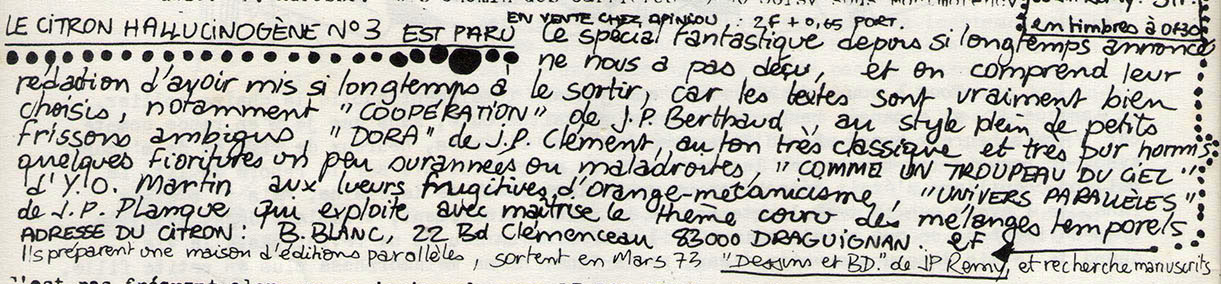 EN VENTE CHEZ OPINIOU, : 2F + 0,65 PORT.
en timbres à 0F30
LE CITRON HALLUCINOGÈNE N°3 EST PARU Ce spécial fantastique depuis si longtemps annoncé
ne nous a pas déçu, et on comprend leur
rédaction d'avoir mis si longtemps à le sortir, car les textes sont vraiment bien
choisis, notamment "COOPÉRATION" de J.P. Berthaud, au style plein de petits
frissons ambigus, "DORA" de J.P. Clément, au ton très classique et très pur hormis
quelques fioritures un peu surannées ou maladroites, "COMME UN TROUPEAU DU GEL"
d'Y.O. Martin aux lueurs frugitives d'orange-mécanicisme, "UNIVERS PARALLÈLES"
de J.P. Planque qui exploite avec maîtrise le thème couru des mélanges temporels
ADRESSE DU CITRON : B. BLANC, 22 Bd Clémenceau 83000 DRAGUIGNAN. ef
Ils préparent une maison d'éditions parallèles, sortent en Mars 73 "Dessins et BD." de JP Remy, et recherche manuscrits